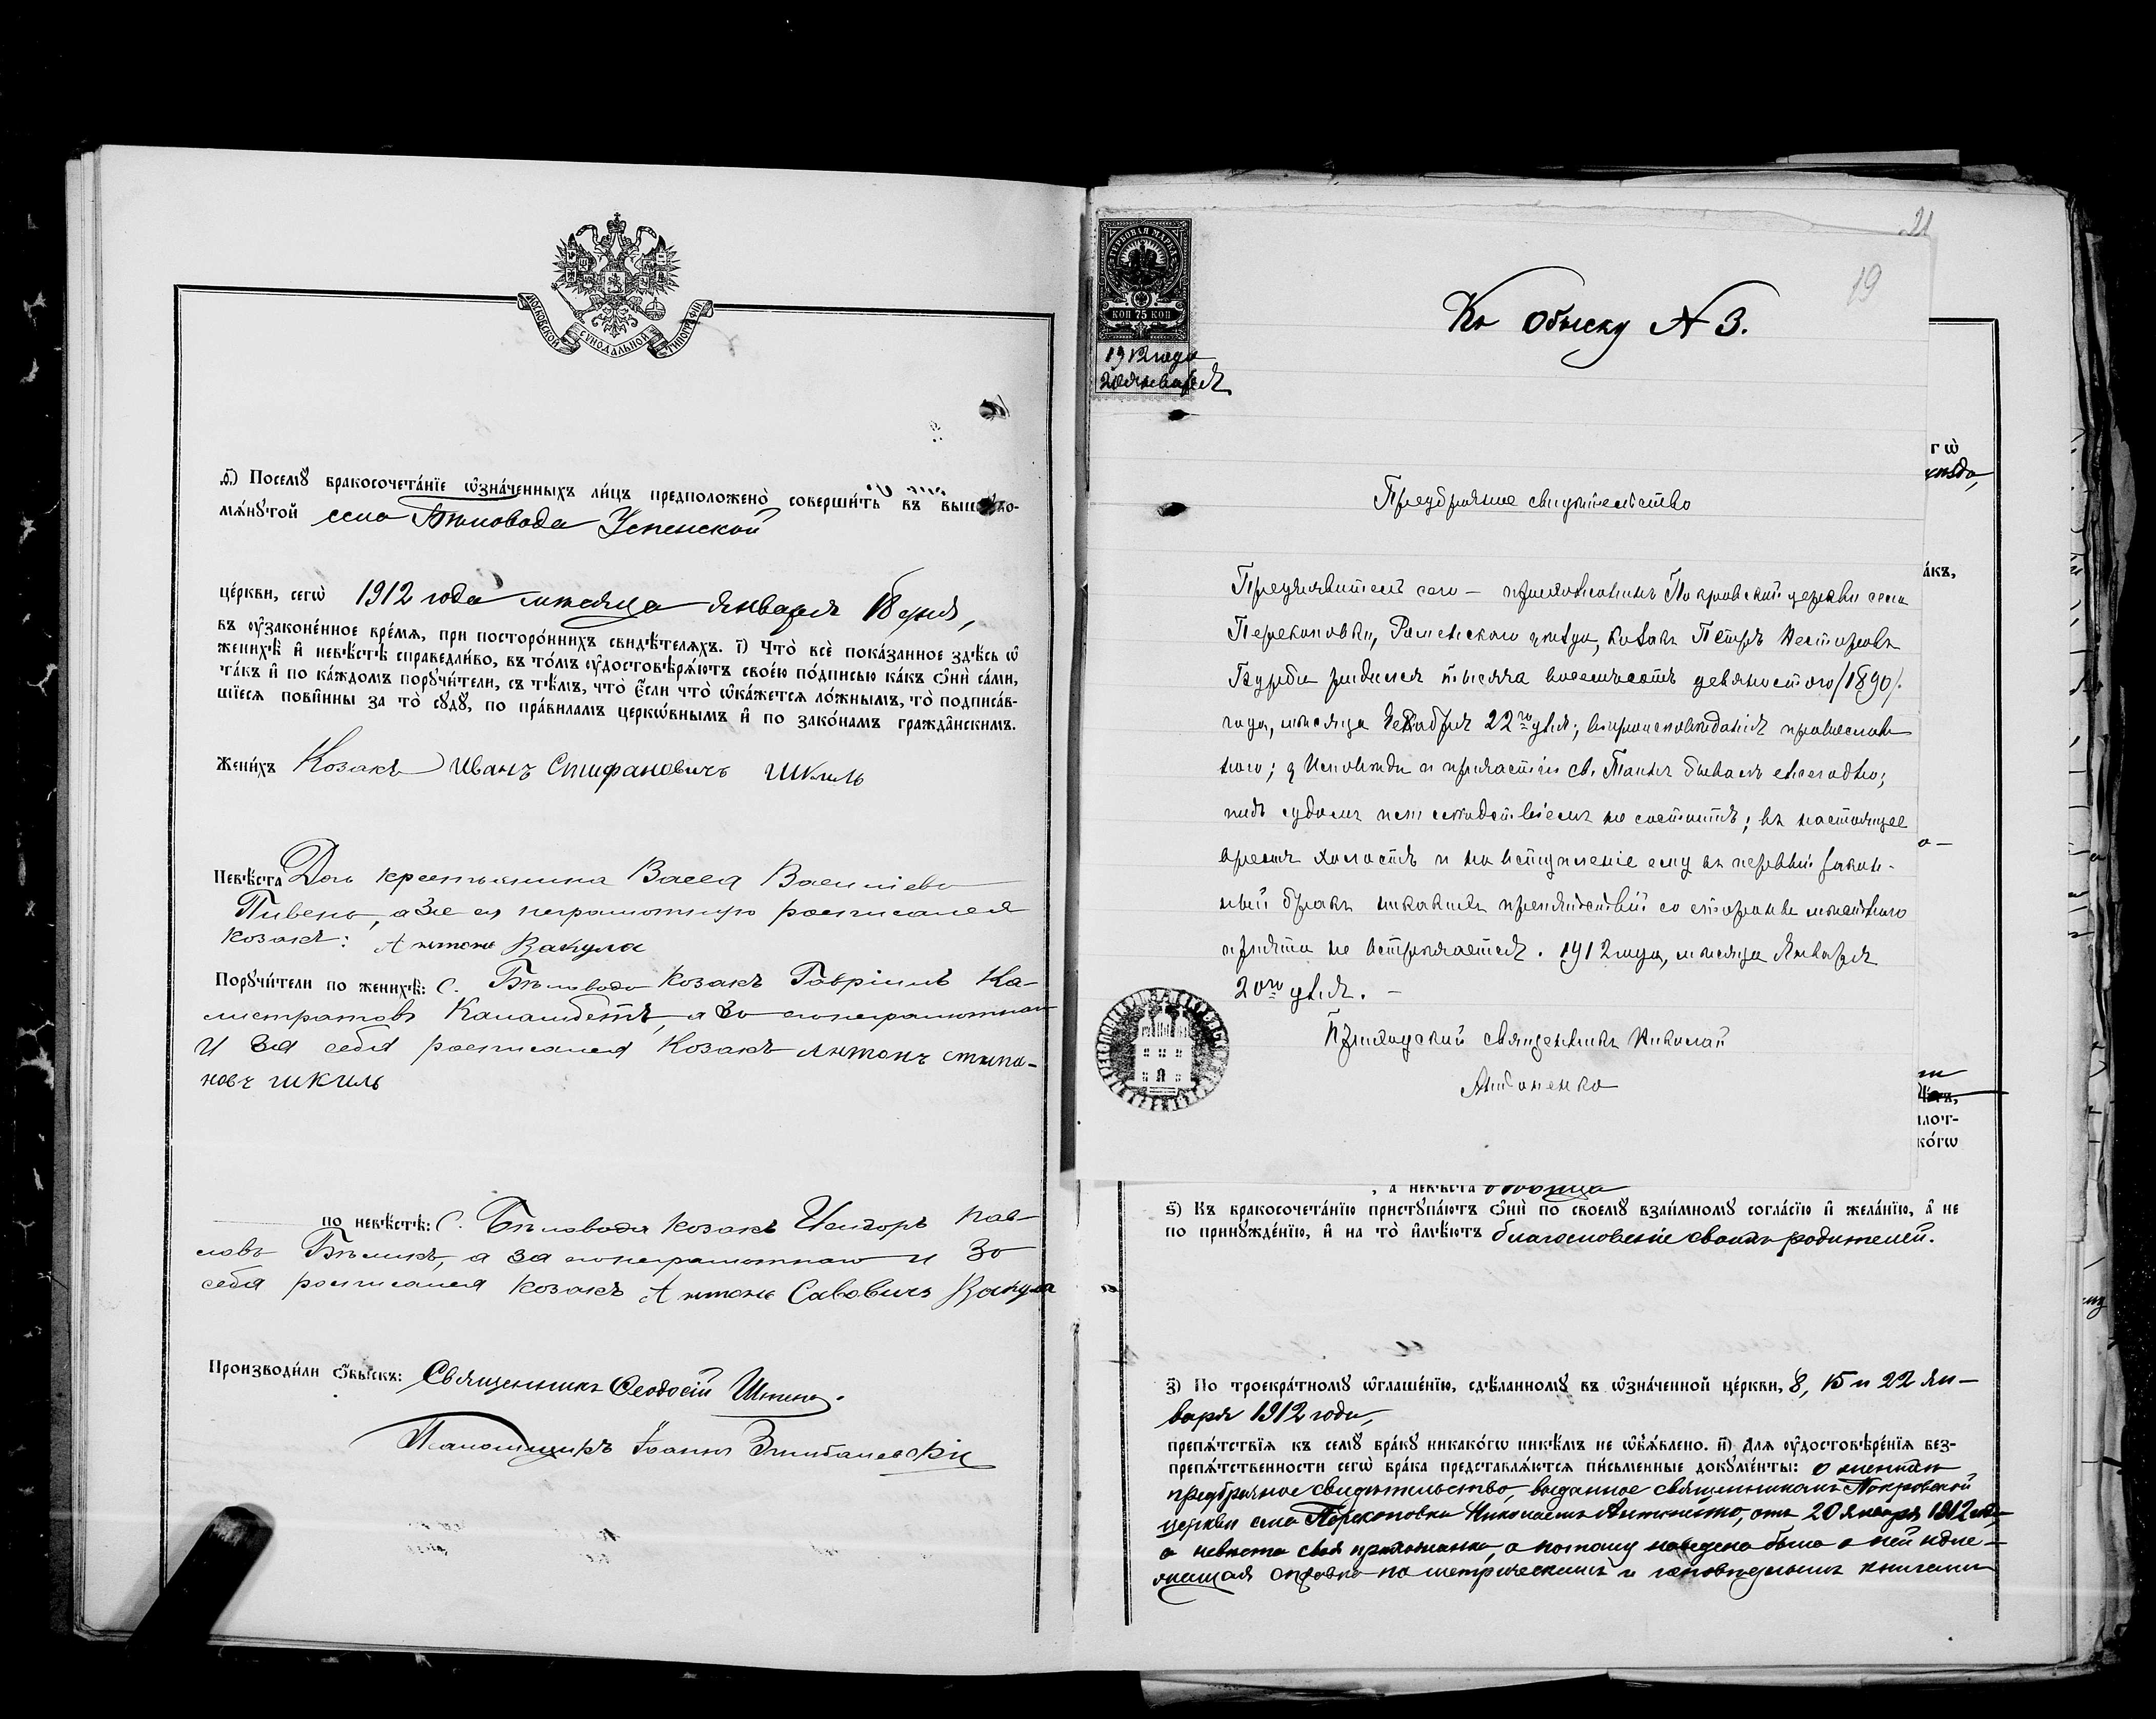 МОСКОВСКОЙ СѴНОДАЛЬНОЙ ТИПОГРАФІИ
д҃і) Посемꙋ̀ бракосочета́нїе ѡ҆зна́ченныхъ ли́цъ предположено̀ соверши́ть въ вышеꙋпо-
мѧ́нꙋтой села Бѣловода Успенской
це́ркви, сегѡ̀ 1912 года мѣсяца января 18 дня,
въ ᲂу҆зако́ненное вре́мѧ, при посторо́ннихъ свидѣ́телѧхъ. і҃) Что̀ всѐ пока́занное здѣ́сь ѡ҆
женихѣ̀ и҆ невѣ́стѣ справедли́во, въ то́мъ ᲂу҆достовѣрѧ́ютъ свое́ю по́дписью ка́къ ѻ҆нѝ са́ми,
та́къ и҆ по ка́ждомъ порꙋчи́тели, съ тѣ́мъ, что̀ є҆́сли что̀ ѡ҆ка́жетсѧ ло́жнымъ, то̀ подписа́в-
шїесѧ пови́нны за то̀ сꙋдꙋ̀, по пра́виламъ церко́внымъ и҆ по зако́намъ гражда́нскимъ.
Жени́хъ Козакъ Иванъ Стифановичъ Шкиль
Невѣ́ста Дочь крестьянина Васса Василіева
Пивень, а за ея неграмотную росписался
козакъ: Антонъ Вакула
Порꙋчи́тели по женихѣ̀: С. Бѣловода Козакъ Гавріилъ Ка-
листратовъ, а за его неграмотнаго
и за себя росписался Козакъ Антонъ стипа-
новъ шкиль
по невѣ́стѣ: С. Бѣловода козакъ Пав-
ловъ Бѣликъ, а за его неграмотнаго и за
себя росписался козакъ Антонъ Савовичъ Вакула
Производи́ли ѻ҆́быскъ: Священникъ Ѳеодосій
Псаломщикъ Іоаннъ
21
19
ГЕРБОВАЯ МАРКА
КОП 75 КОП
1912 года
20 января
Къ Обыску № 3.
Предбрачное свидѣтельство
Предъявитель сего – прихожанинъ Покровской церкви села
Перекоповки, Роменскаго уѣзда, козакъ Петръ Несторовъ
Бурба родился тысяча восемьсотъ девяностого /1890/.
года, мѣсяца Декабря 22го дня; вѣроисповѣданія православ
наго; у Исповѣди и причастія св. Таинъ бываетъ ежегодно;
подъ судомъ и слѣдствіемъ не состоитъ; въ настоящее
время холостъ и на вступленіе ему въ первый закон-
ный бракъ никакихъ препятствій со стороны мѣстнаго
причта не встрѣчается. 1912 года, мѣсяца Января
20го дня. –
Приходскій священникъ Николай
Антоненко
гѡ̀
а́къ,
лог-
ко́гѡ
, а҆ невѣ́ста дѣвица
ѕ҃) Къ бракосочета́нїю пристꙋпа́ютъ ѻ҆нѝ по своемꙋ̀ взаи́мномꙋ согла́сїю и҆ жела́нїю, а҆ не
по принꙋжде́нїю, и҆ на то̀ и҆мѣ́ютъ благословеніе своихъ родителей.
з҃) По троекра́тномꙋ ѡ҆глаше́нїю, сдѣ́ланномꙋ въ ѡ҆зна́ченной це́ркви, 8, 15 и 22 ян-
варя 1912 года,
препѧ́тствїѧ къ семꙋ̀ бра́кꙋ никако́гѡ никѣ́мъ не ѡ҆б̾ѧ́влено. и҃) Длѧ ᲂу҆достовѣре́нїѧ без-
препѧ́тственности сегѡ̀ бра́ка представлѧ́ютсѧ пи́сьменные докꙋме́нты: о женихѣ
предбрачное свидѣтельство, выданное священникомъ Покровской
церкви села Перекоповки Николаемъ Антоненко, отъ 20 января 1912 года,
а невѣста своя прихожанка, а потому наведена была о ней надле-
жащая справка по метрическимъ и исповѣднымъ книгамъ